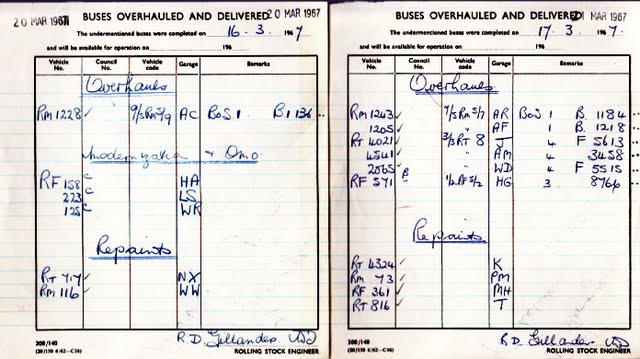 20 MAR 1967
BUSES OVERHAULED AND DELIVERED
20 MAR 1967
The undermentioned buses were completed on 16. 3. 1967
and will be available for operation on 196
Vehicle No. Council No. Vehicle code Garage Remarks
Overhauls
RM 1228 ✓ 9/5RM5/9 AC BoS 1 B 1136
Modernization + Omo
RF 158 c HA
223 c LS
125 c WR
Repaints
RT 717 ✓ NX
RM 116 ✓ WW
R.D. Gillanders
308/140
(20/150 6/62—C16)
ROLLING STOCK ENGINEER
BUSES OVERHAULED AND DELIVERED
21 MAR 1967
The undermentioned buses were completed on 17. 3. 1967.
and will be available for operation on 196
Vehicle No. Council No. Vehicle code Garage Remarks
Overhauls
RM 1243 ✓ 7/5RM5/7 AR BoS 1 B. 1184
1205 ✓ " AF 1 B. 1218
RT 4021 ✓ 3/3RT 8 J 4 F 5613
4541 ✓ " AM 4 3458
2565 ✓ " WD 4 F 5515
RF 571 B 1/2RF5/2 HG 3. 8766
Repaints
RT 4324 ✓ K
RM 73 ✓ PM
RF 361 ✓ MH
RT 816 ✓ T
R.D. Gillanders
308/140
(20/150 6/62—C16)
ROLLING STOCK ENGINEER